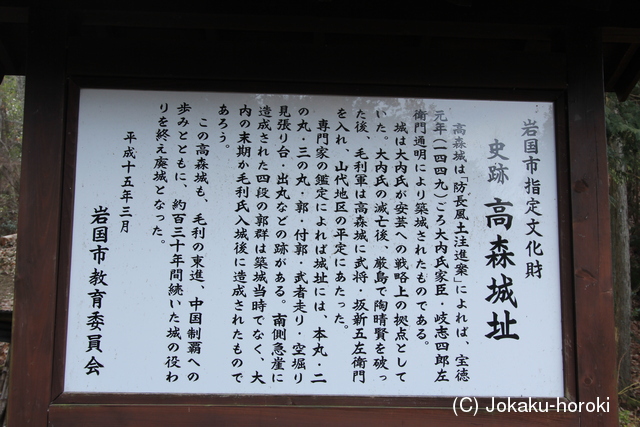 岩国市指定文化財
史跡 高森城址
高森城は「防長風土注進案」によれば、宝徳
元年(一四四九)ごろ大内氏家臣・岐志四郎左
衛門通明により築城されたものである。
城は大内氏が安芸への戦略上の拠点として
いた。大内氏の滅亡後、厳島で陶晴賢を破っ
た後、毛利軍は高森城に武将・坂新五左衛門
を入れ、山代地区の平定にあたった。
専門家の鑑定によれば城址には、本丸・二
の丸・三の丸・郭・付郭・武者走り・空堀り
見張り台・出丸などの跡がある。南側急崖に
造成された四段の郭群は築城当時でなく、大
内の末期か毛利氏入城後に造成されたもので
あろう。
この高森城も、毛利の東進、中国制覇への
歩みとともに、約百三十年間続いた城の役わ
りを終え廃城となった。
平成十五年三月
岩国市教育委員会
(C) Jokaku-horoki